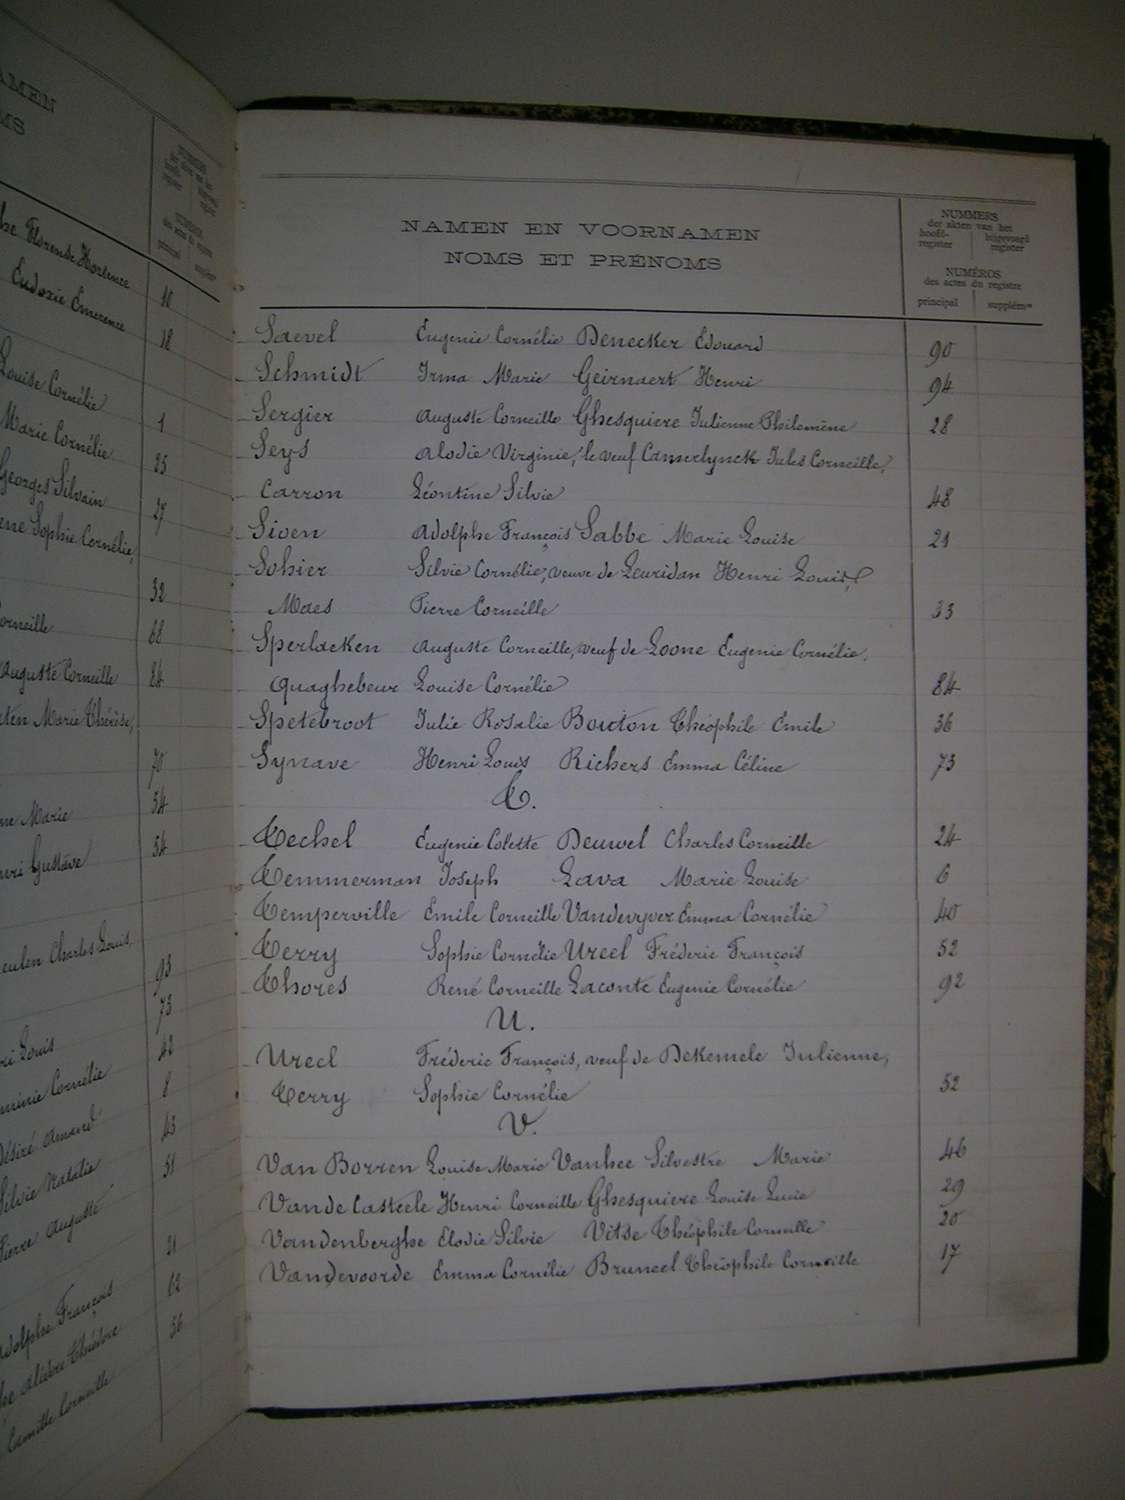 AMEN
MS
NUMMERS
der akten van het
hoofd-
register
bijgevoegd
register
NUMÉROS
des actes du registre
principal
supplémre
he Florende Hortence 10
Eudoxie Emerence 18
Louise Cornélie 1
Marie Cornélie 25
Georges Silvain 27
ene Sophie Cornélie,
32
orneille 88
Auguste Corneille 84
ten Marie Thérèse,
70
ne Marie 54
nri Gustave 34
eulen Charles Louis,
93
73
ri Louis 42
minie Cornélie 8
Désiré Amand 43
Silvie Natalie 51
Pierre Auguste
21
Adolphe François 62
he Alidor Théodore 56
Camille Corneille
NAMEN EN VOORNAMEN
NOMS ET PRÉNOMS
NUMMERS
der akten van het
hoofd-
register
bijgevoegd
register
NUMÉROS
des actes du registre
principal
supplémre
Saevel Eugenie Cornélie Denecker Edouard 90
Schmidt Irma Marie Geirnaert Henri 94
Sergier Auguste Corneille Ghesquiere Julienne Philomène 28
Seys Alodie Virginie, le veuf Camerlynck Jules Corneille,
Carron Léontine Silvie 48
Sioen Adolphe François Sabbe Marie Louise 21
Sohier Silvie Cornélie, veuve de Leuridan Henri Louis,
Maes Pierre Corneille 33
Sperlaeken Auguste Corneille, veuf de Loone Eugenie Cornélie,
Quaghebeur Louise Cornélie 84
Spetebroot Julie Rosalie Bouton Théophile Emile 36
Synave Henri Louis Richers Emma Céline 73
T.
Techel Eugenie Colette Deuwel Charles Corneille 24
Temmerman Joseph Lava Marie Louise 6
Temperville Emile Corneille Vandevyver Emma Cornélie 40
Terry Sophie Cornélie Ureel Fréderic François 52
Thores René Corneille Laconte Eugenie Cornélie 92
U.
Ureel Fréderic François, veuf de DeKemele Julienne,
Terry Sophie Cornélie 52
V.
Van Borren Louise Marie Vanhee Silvestre Marie 46
Vande Casteele Henri Corneille Ghesquiere Louise Lucie 29
Vandenberghe Elodie Silvie Vitse Théophile Corneille 20
Vandevoorde Emma Cornélie Bruneel Théophile Corneille 17